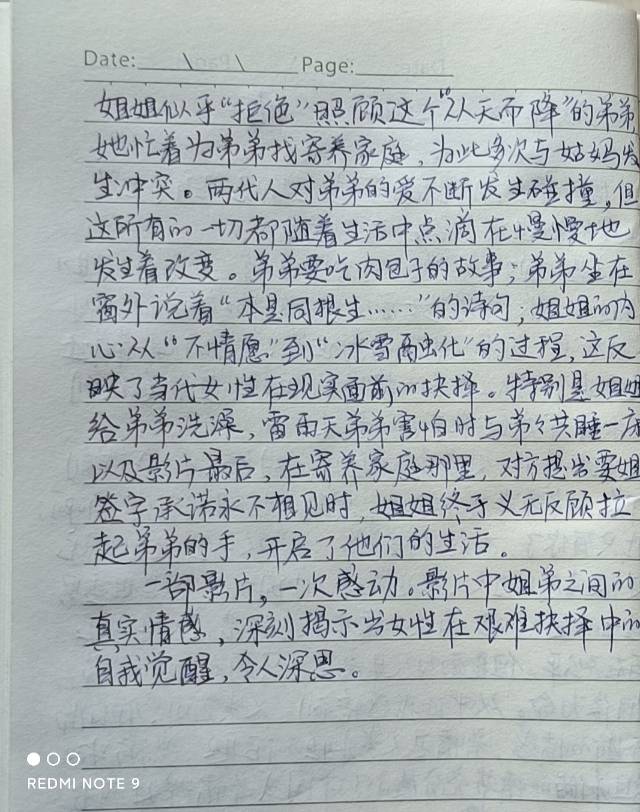 Date: \ \ Page:
姐姐似乎“拒绝”照顾这个“从天而降”的弟弟
她忙着为弟弟找寄养家庭，为此多次与姑妈发
生冲突。两代人对弟弟的爱不断发生碰撞，但
这所有的一切都随着生活中点滴在慢慢地
发生着改变。弟弟要吃肉包子的故事；弟弟坐在
窗外说着“本是同根生……”的诗句；姐姐的内
心从“不情愿”到“冰雪融化”的过程，这反
映了当代女性在现实面前的抉择。特别是姐姐
给弟弟洗澡，雷雨天弟弟害怕时与弟々共睡一床
以及影片最后，在寄养家庭那里，对方提出要姐
签字承诺永不相见时，姐姐终于义无反顾拉
起弟弟的手，开启了他们的生活。
一部影片，一次感动。影片中姐弟之间的
真实情感，深刻揭示出女性在艰难抉择中的
自我觉醒，令人深思。
REDMI NOTE 9